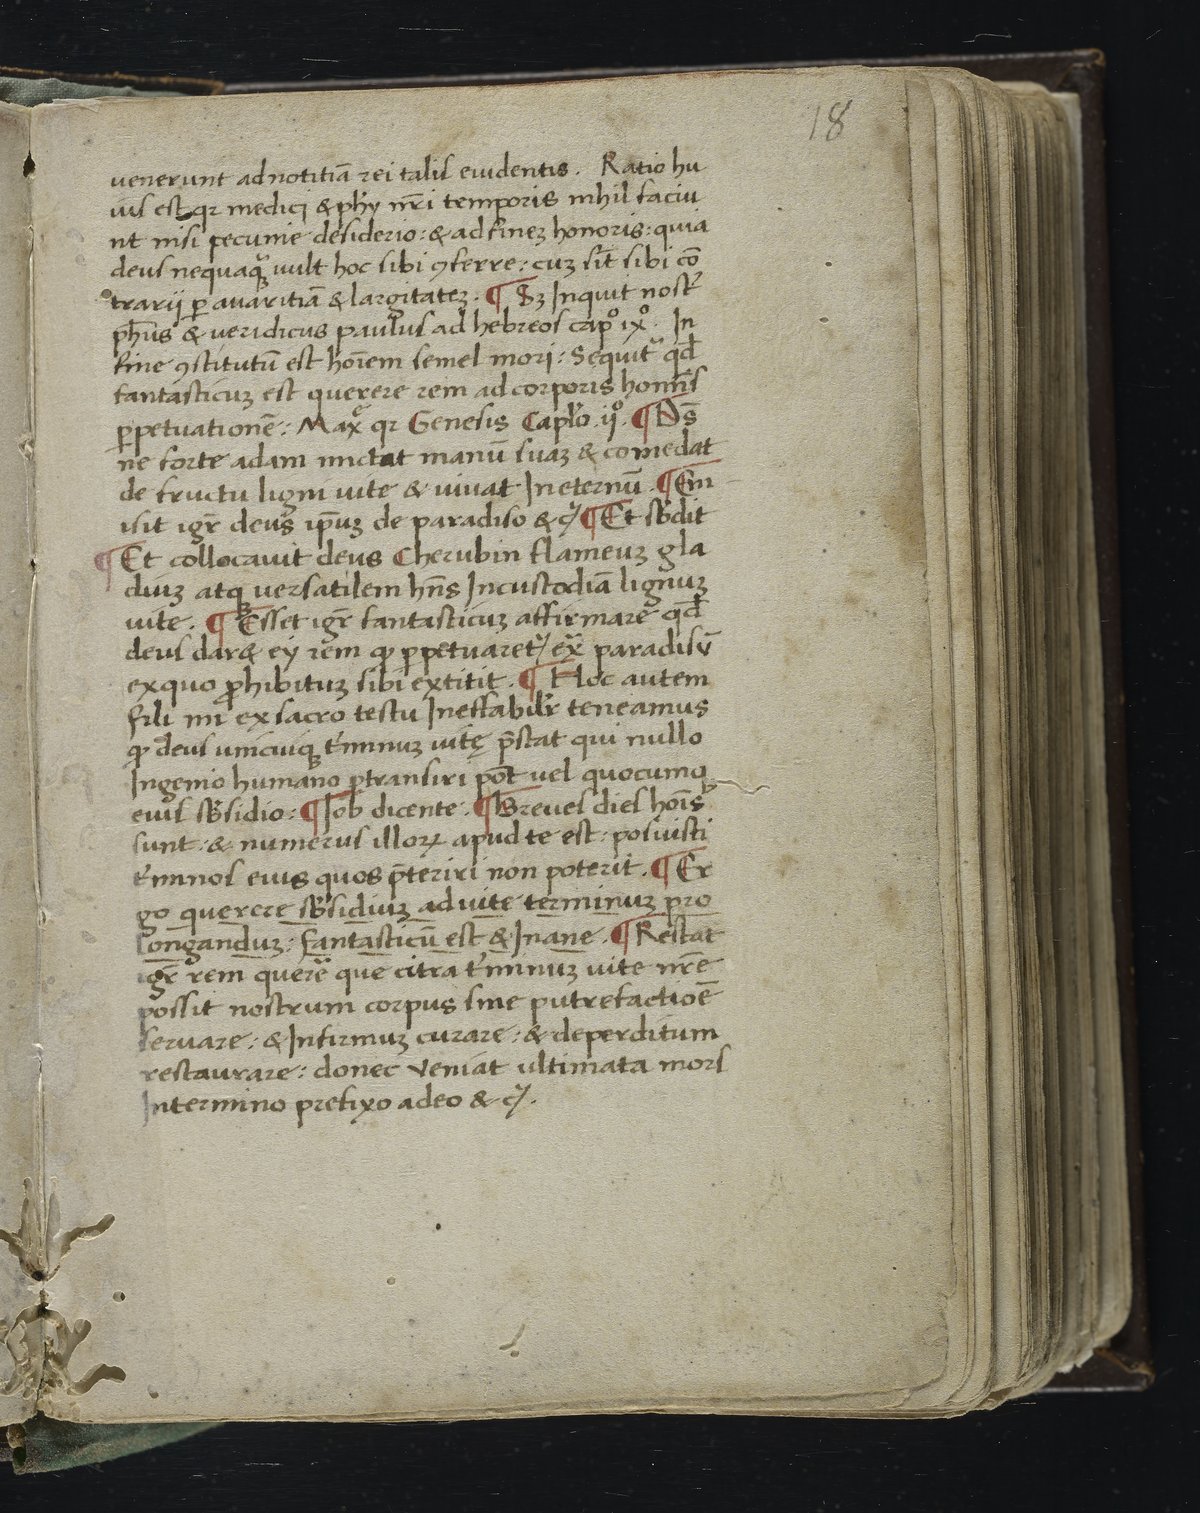 18
uenerunt ad notitiā rei talis euidentis. Ratio hu
ius est qr medici & phy nr̄i temporis nihil faciu
nt nisi pecunie desiderio: & ad finez honoris: quia
deus nequaqȝ uult hoc sibi ꝯferre: cuz sīt sibi cō
trarij ꝑ auaritiā & largitatez. ¶ Sȝ Inquit nostʳ
ph̄us & ueridicus paulus ad hebreos capº ixº. In
fine ꝯstitutū est hoīem semel mori: Sequitʳ qd̄
fantasticuz est querere rem ad corporis homīs
ꝑpetuationē: Maxᵉ qr Genesis Caplo. ijº. ¶ Ds̄
ne forte adam mictat manū suaz & comedat
de fructu ligni uite & uiuat Ineternū. ¶ Em
isit igr̄ deus ip̄uz de paradiso & cꝭ ¶ Et sb̄dit
¶ Et collocauit deus Cherubin flameuz gla
diuz atqȝ uersatilem hn̄s Incustodiā lignuz
uite. ¶ Esset igr̄ fantasticuz affirmare qd̄
deus dar& ei rem ꝙ ꝑpetuaretʳ exᵃ paradisū
exquo ꝓhibituz sibi extitit. ¶ Hoc autem
fili mi ex sacro testu Ineffabilr̄ teneamus
ꝙ deus unicuiqȝ t̄minuz uitę p̄stat qui nullo
Ingenio humano ꝑtransiri pōt uel quocumqȝ
eius sb̄sidio: ¶ Iob dicente. ¶ Breues dies hoīs
sunt: & numerus illoꝝ apud te est: posuisti
t̄minos eius quos p̄teriri non poterit. ¶ Er
go querere sb̄sidiuz ad uite terminuz pro
longanduz: fantasticū est & Inane. ¶ Restat
igr̄ rem querē que citra t̄minuz uite nr̄e
possit nostrum corpus sine putrefactioē
seruare: & Infirmuz curare: & deperditum
restaurare: donec veniat ultimata mors
Intermino prefixo adeo & cꝭ.